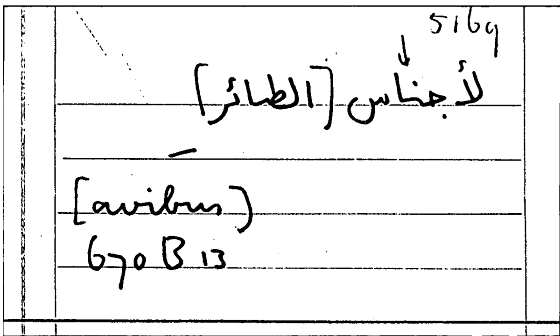 5169
لأجناس [الطائر]
[avibus]
670 B 13